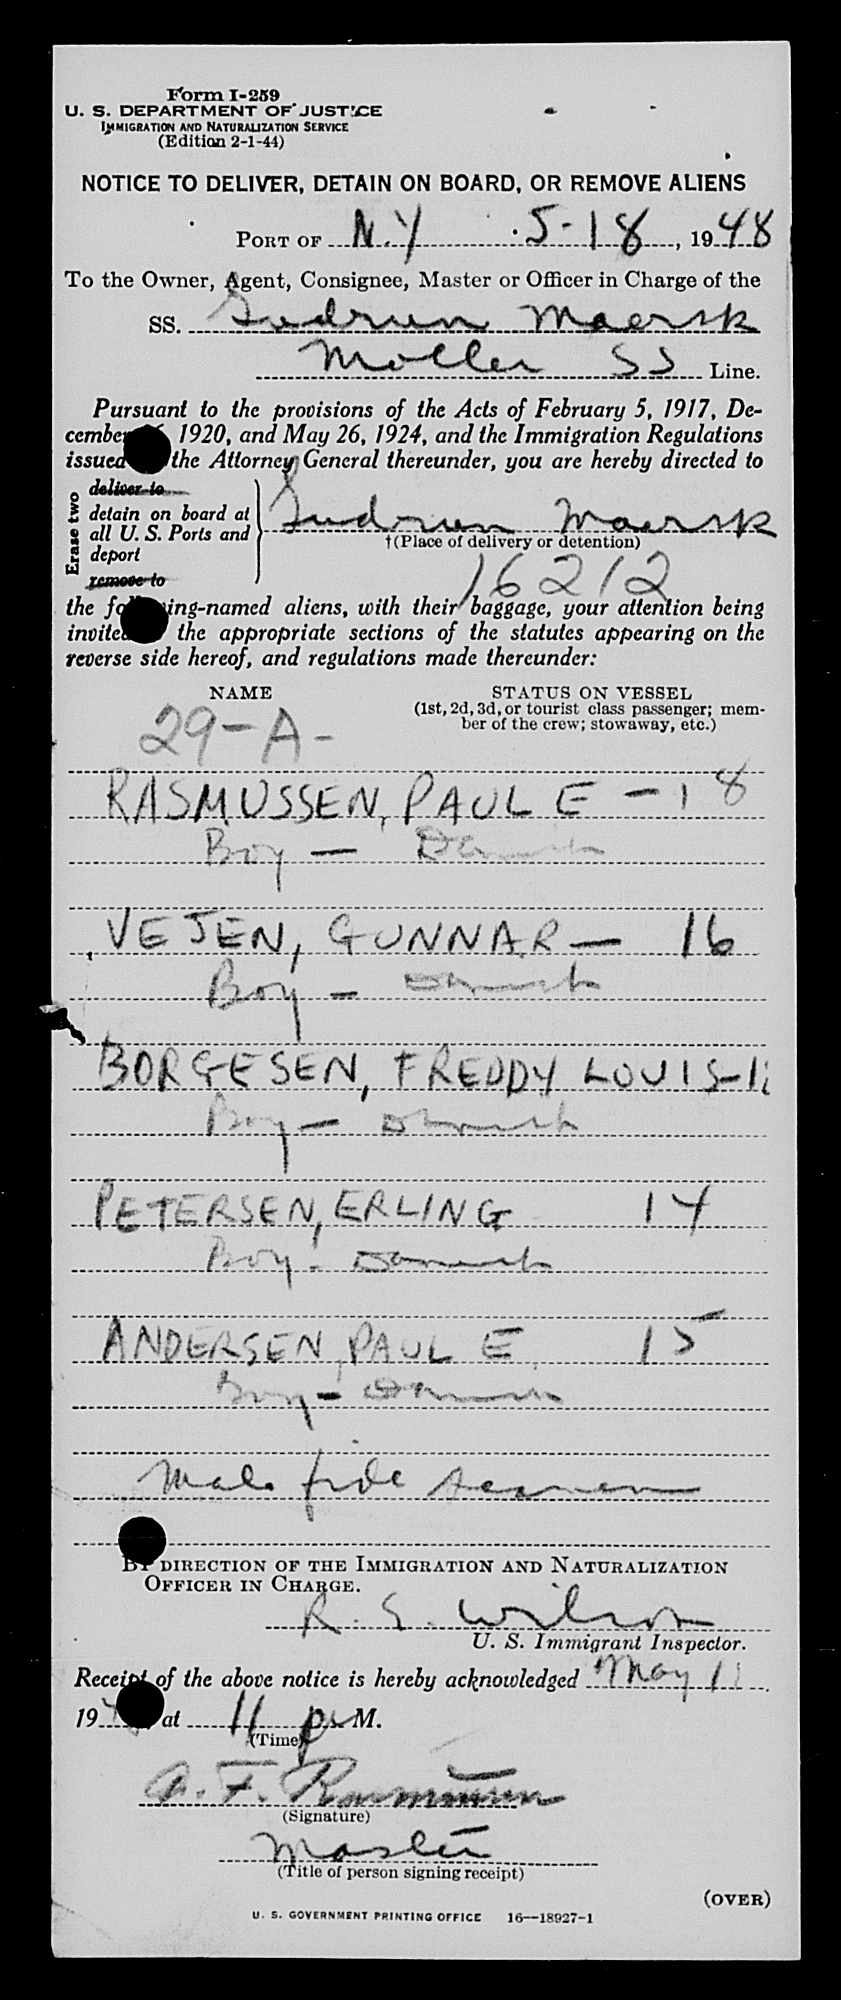 Form I-259
U. S. DEPARTMENT OF JUSTICE
IMMIGRATION AND NATURALIZATION SERVICE
(Edition 2-1-44)
NOTICE TO DELIVER, DETAIN ON BOARD, OR REMOVE ALIENS
PORT OF N.Y 5-18, 1948
To the Owner, Agent, Consignee, Master or Officer in Charge of the
SS. Gudrun Maersk
Moller SS Line.
Pursuant to the provisions of the Acts of February 5, 1917, De-
cember 1920, and May 26, 1924, and the Immigration Regulations
issued the Attorney General thereunder, you are hereby directed to
Erase two
deliver to
detain on board at
all U. S. Ports and
deport
remove to
Gudrun Maersk
†(Place of delivery or detention)
16212
the following-named aliens, with their baggage, your attention being
invited the appropriate sections of the statutes appearing on the
reverse side hereof, and regulations made thereunder:
NAME STATUS ON VESSEL
(1st, 2d, 3d, or tourist class passenger; mem-
ber of the crew; stowaway, etc.)
29-A-
RASMUSSEN, PAUL E - 18
Boy - Danish
VEJEN, GUNNAR - 16
Boy - Danish
BORGESEN, FREDDY LOUIS-
Boy - Danish
PETERSEN, ERLING 14
Boy - Danish
ANDERSEN, PAUL E. 15
Boy - Danish
Mala fide seamen
BY DIRECTION OF THE IMMIGRATION AND NATURALIZATION
OFFICER IN CHARGE.
R. E. Wilson
U. S. Immigrant Inspector.
Receipt of the above notice is hereby acknowledged May
19 at 11 p. M.
(Time)
A. F. Rasmussen
(Signature)
Master
(Title of person signing receipt)
(OVER)
U. S. GOVERNMENT PRINTING OFFICE 16—18927-1